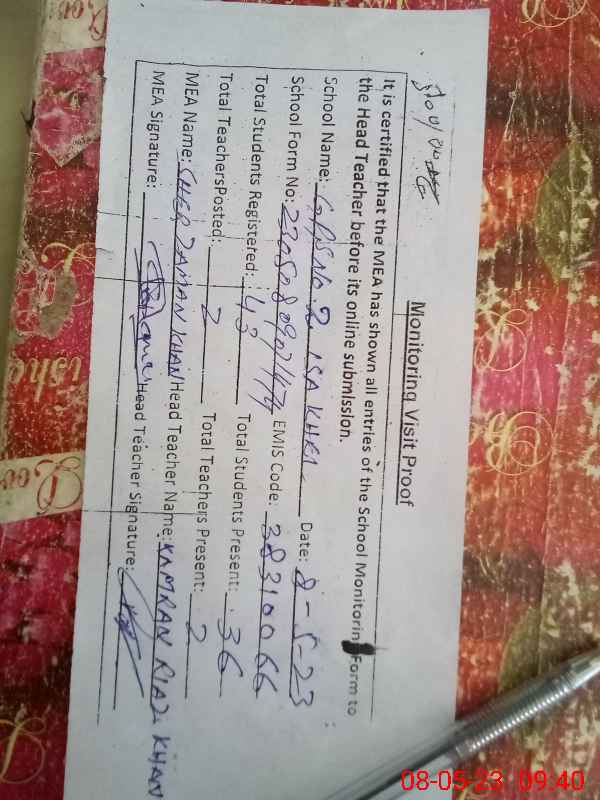 Monitoring Visit Proof
It is certified that the MEA has shown all entries of the School Monitorin Form to
the Head Teacher before its online submission.
School Name: GPS No. 2 ISA KHEL Date: 8-5-23
School Form No: EMIS Code: 38310066
Total Students Registered: 43 Total Students Present: 36
Total TeachersPosted: 2 Total Teachers Present: 2
MEA Name: SHER ZAMAN KHAN Head Teacher Name: KAMRAN RIAZ KHAN
MEA Signature: Head Teacher Signature:
08-05-23 09.40